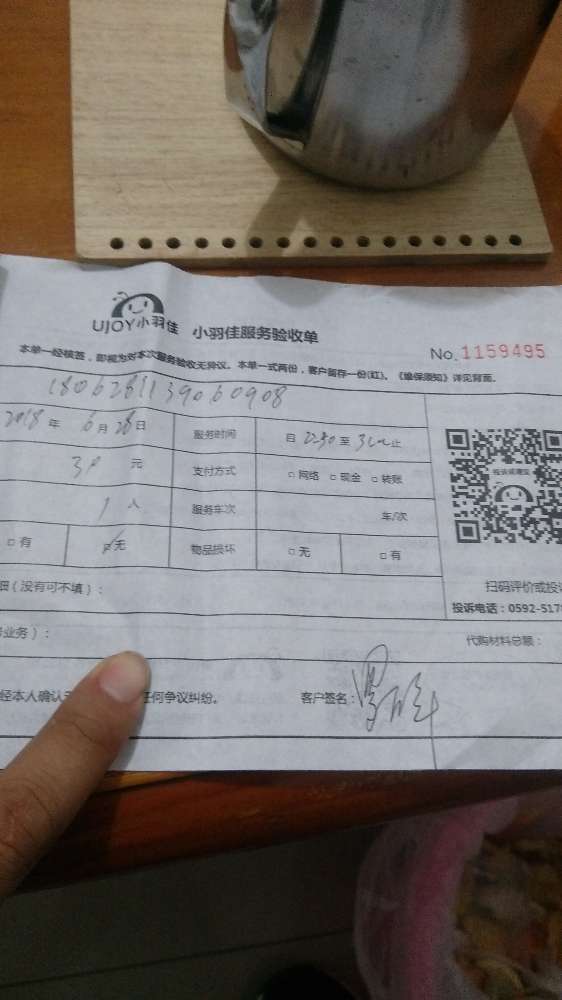 UJOY小羽佳 小羽佳服务验收单
No. 1159495
本单一经核签,即视为对本次服务验收无异议。本单一式两份,客户留存一份(红)。《维保须知》详见背面。
180628113906090​8
2018年 6月28日 服务时间 自 2:30 至 止
30 元 支付方式 □网络 □现金 □转账
1人 服务车次 车/次
□有 □无 物品损坏 □无 □有
投诉或建议
扫码评价或投诉
细(没有可不填):
投诉电话:0592-517
业务): 代购材料总额:
经本人确认 任何争议纠纷。 客户签名: